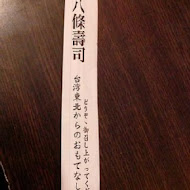 八條壽司
どうぞ、御召し上がってく
台湾東北からのおもてなし